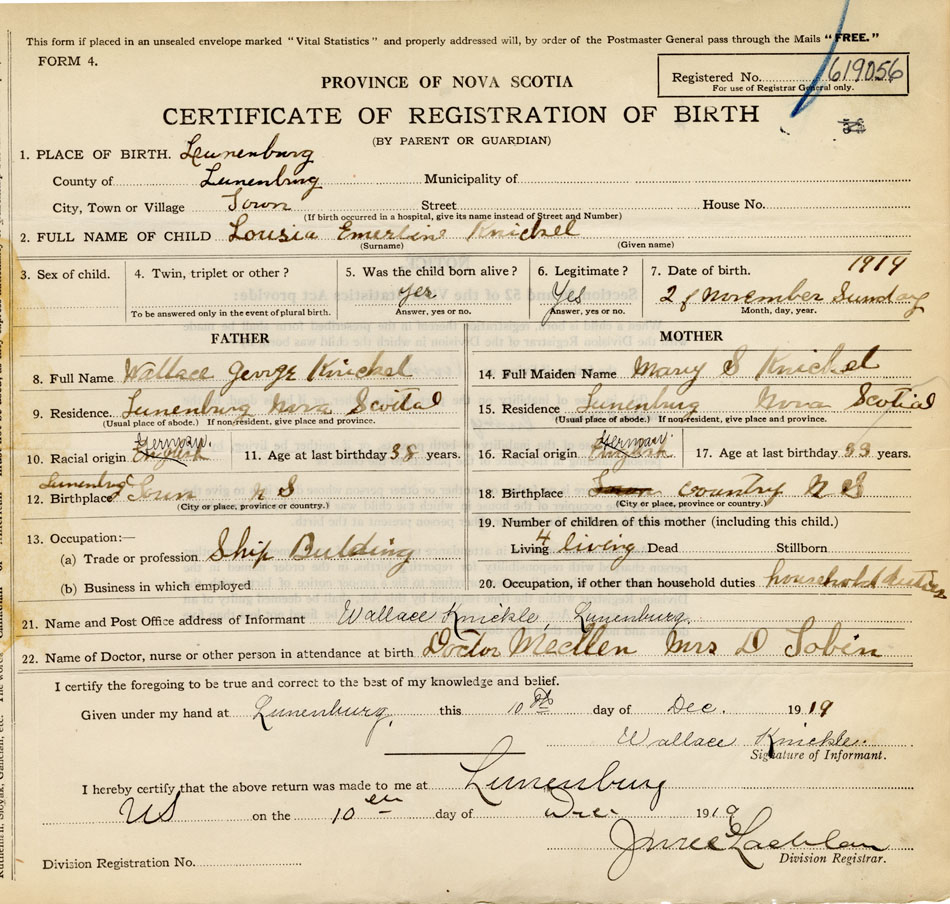 This form if placed in an unsealed envelope marked "Vital Statistics" and properly addressed will, by order of the Postmaster General pass through the Mails "FREE."
FORM 4.
Registered No. 619056
For use of Registrar General only.
PROVINCE OF NOVA SCOTIA
CERTIFICATE OF REGISTRATION OF BIRTH
(BY PARENT OR GUARDIAN)
1. PLACE OF BIRTH. Lunenburg
County of Lunenburg Municipality of
City, Town or Village Town Street House No.
(If birth occurred in a hospital, give its name instead of Street and Number)
2. FULL NAME OF CHILD Lousia Emerline Knickel
(Surname) (Given name)
3. Sex of child. 4. Twin, triplet or other? 5. Was the child born alive? 6. Legitimate? 7. Date of birth. 1919
yer Yes 2 of november Sunday
To be answered only in the event of plural birth. Answer, yes or no. Answer, yes or no. Month, day, year.
FATHER
8. Full Name Wallace George Knickel
9. Residence. Lunenburg Nova Scotial
(Usual place of abode.) If non-resident, give place and province.
German.
10. Racial origin English 11. Age at last birthday 38 years.
Lunenburg
12. Birthplace Town N S
(City or place, province or country.)
13. Occupation:—
(a) Trade or profession Ship Bulding
(b) Business in which employed
MOTHER
14. Full Maiden Name Mary S Knickel
15. Residence Lunenburg Nova Scotial
(Usual place of abode.) If non-resident, give place and province.
German.
16. Racial origin English 17. Age at last birthday 33 years.
18. Birthplace Town country N S
(City or place, province or country.)
19. Number of children of this mother (including this child.)
Living 4 living Dead Stillborn
20. Occupation, if other than household duties household duties
21. Name and Post Office address of Informant Wallace Knickle, Lunenburg.
22. Name of Doctor, nurse or other person in attendance at birth Doctor Mecllen Mrs D Tobin
I certify the foregoing to be true and correct to the best of my knowledge and belief.
Given under my hand at Lunenburg, this 10th day of Dec. 1919
Wallace Knickle.
Signature of Informant.
I hereby certify that the above return was made to me at Lunenburg
NS on the 10th day of Dec. 1919
Division Registrar.
Division Registration No.